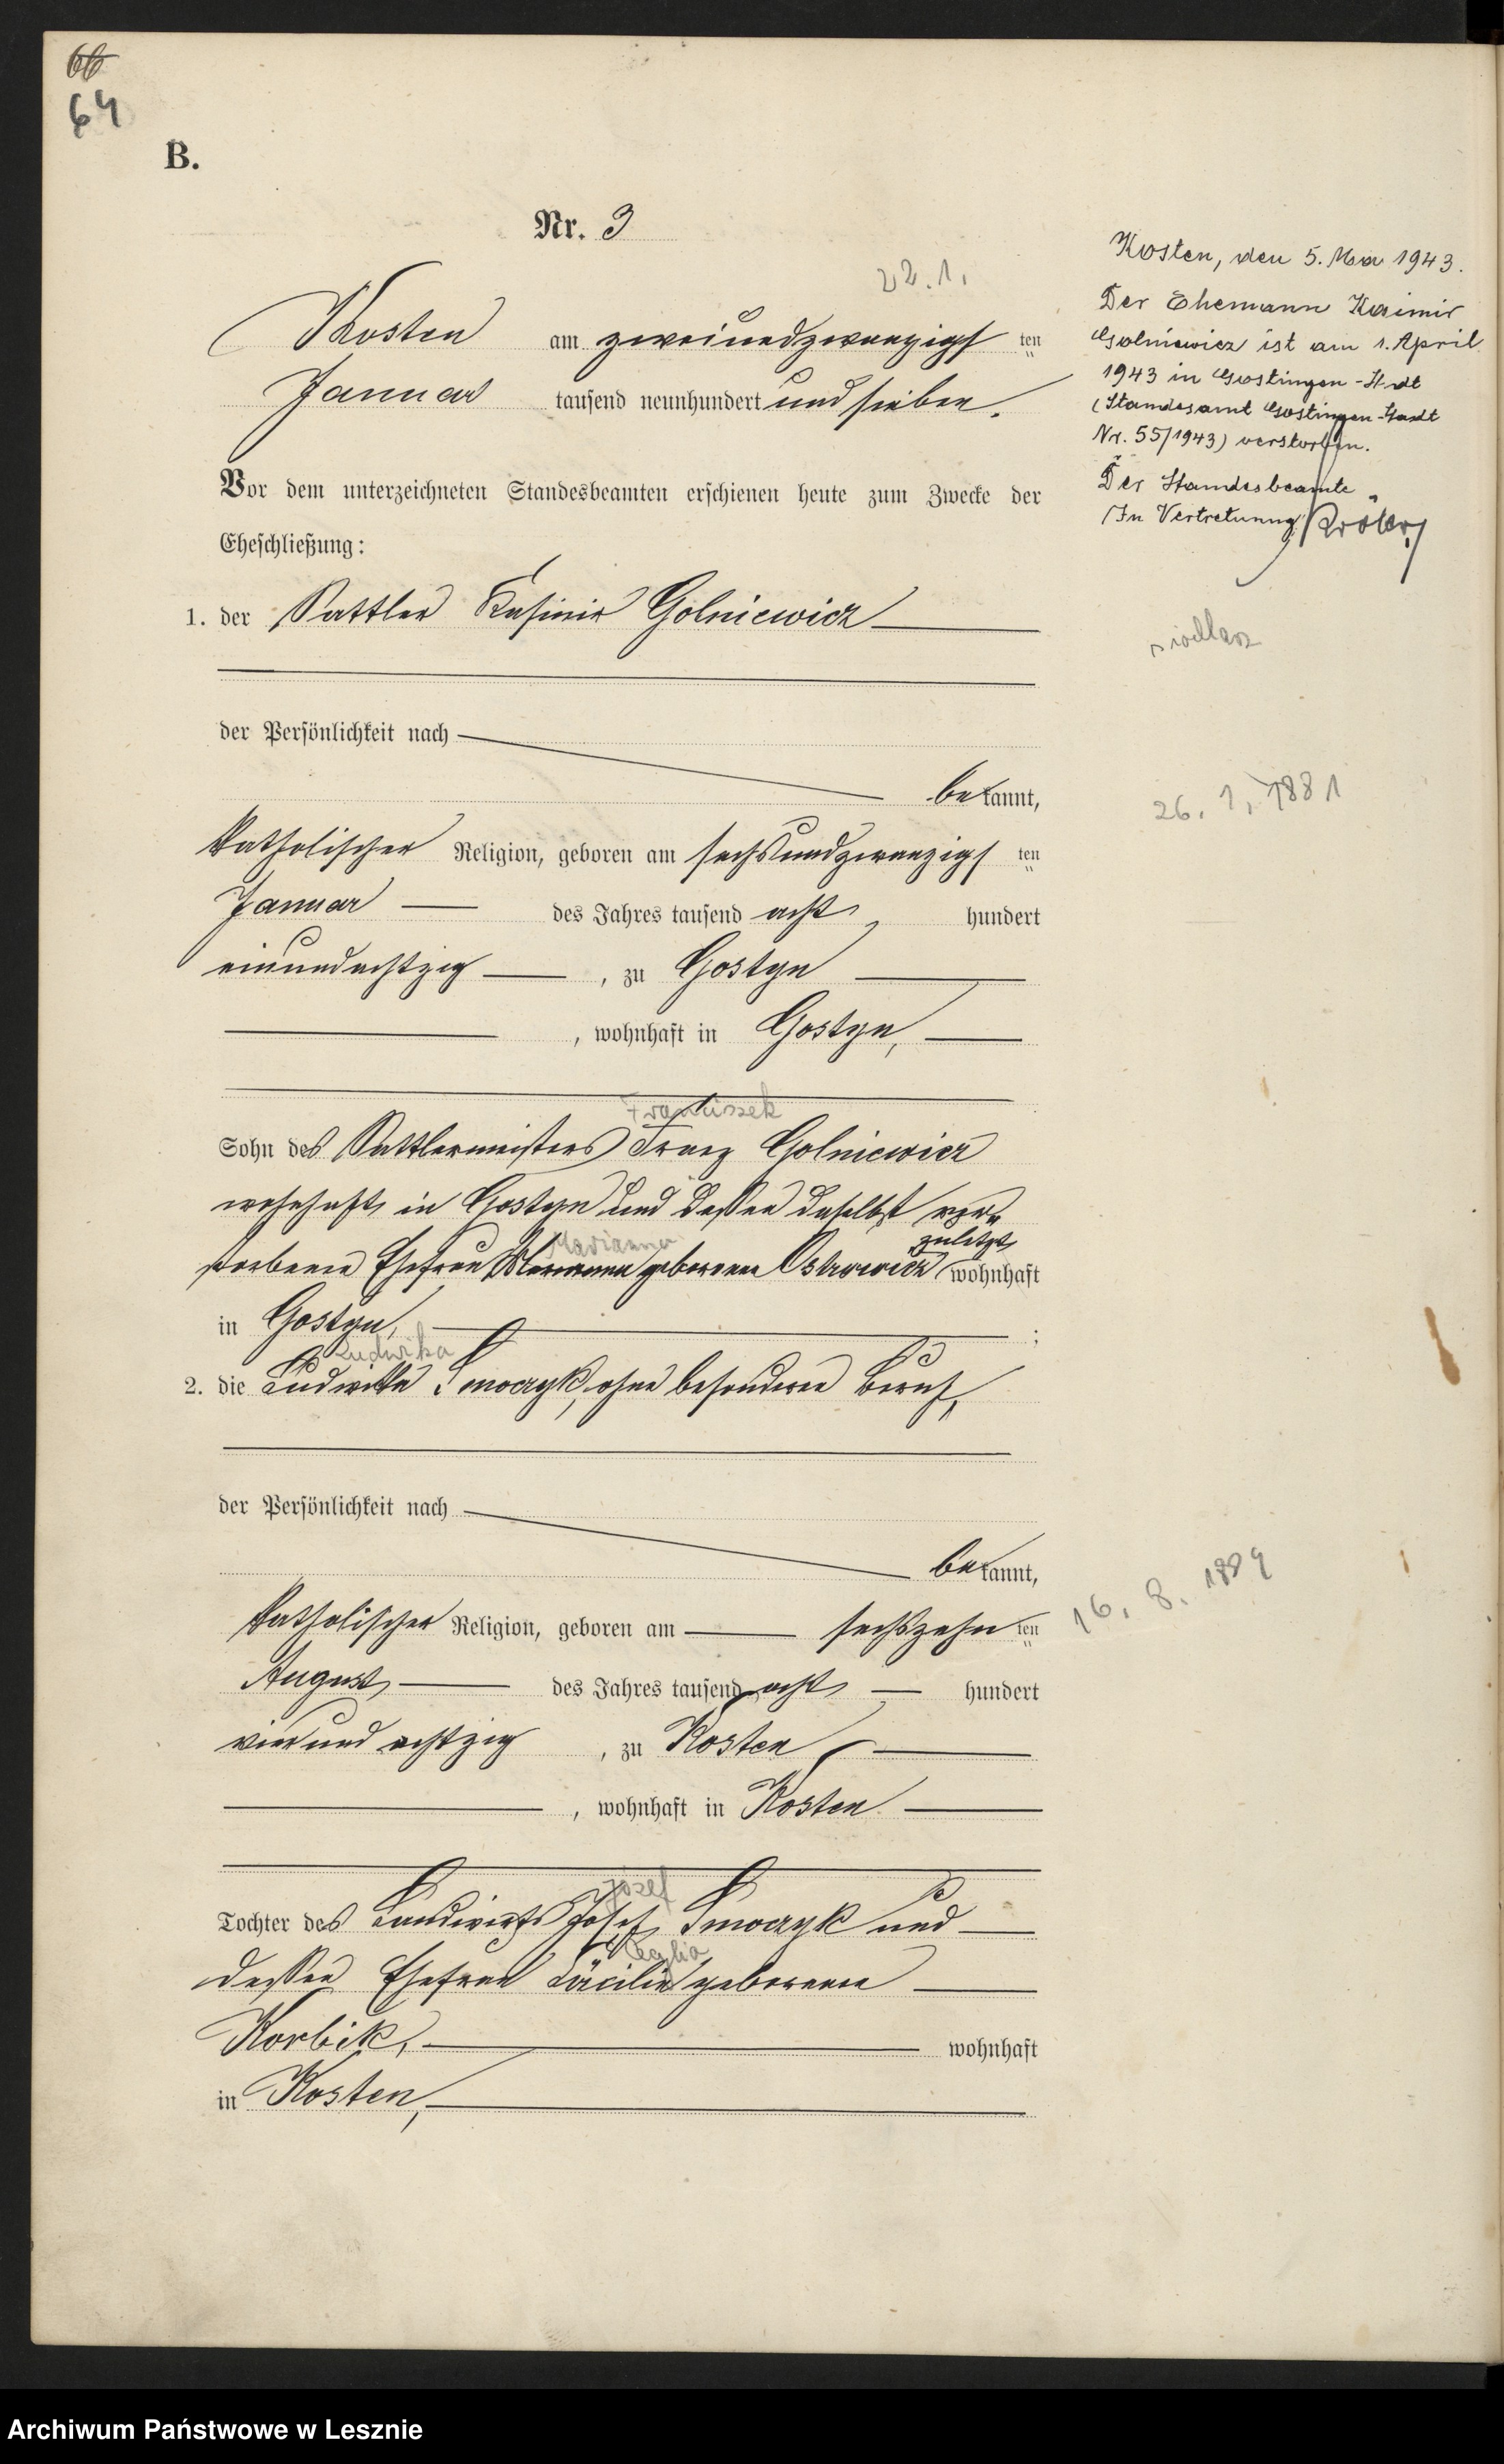 66
64
B.
Nr. 3
22.1.
Kosten am zweiundzwanzigsten
Januar tausend neunhundert und sieben.
Vor dem unterzeichneten Standesbeamten erschienen heute zum Zwecke der
Eheschließung:
1. der Sattler Kasimir Golniewicz
der Persönlichkeit nach
bekannt,
katholischer Religion, geboren am sechsundzwanzigsten
Januar des Jahres tausend acht hundert
einundachtzig, zu Gostyn
, wohnhaft in Gostyn,
Franciszek
Sohn des Sattlermeisters Franz Golniewicz
wohnhaft in Gostyn und dessen daselbst ver-
Marianna zuletzt
storbenen Ehefrau Marianna geborenen Ostrowicz wohnhaft
in Gostyn, ;
Ludwika
2. die Ludwika Smoczyk, ohne besonderen Beruf,
der Persönlichkeit nach
bekannt,
katholischer Religion, geboren am sechszehnten
August des Jahres tausend acht hundert
vierundachtzig, zu Kosten
, wohnhaft in Kosten
Józef
Tochter des Landwirths Josef Smoczyk und
Cecylia
dessen Ehefrau Cäcilie geborenen
Korbik, wohnhaft
in Kosten,
Kosten, den 5. Mai 1943.
Der Ehemann Kasimir
Golniewicz ist am 1. April
1943 in Gostingen-Stadt
(Standesamt Gostingen-Stadt
Nr. 55/1943) verstorben.
Der Standesbeamte
In Vertretung
siodlarz
26. 1. 1881
16. 8. 1884
Archiwum Państwowe w Lesznie